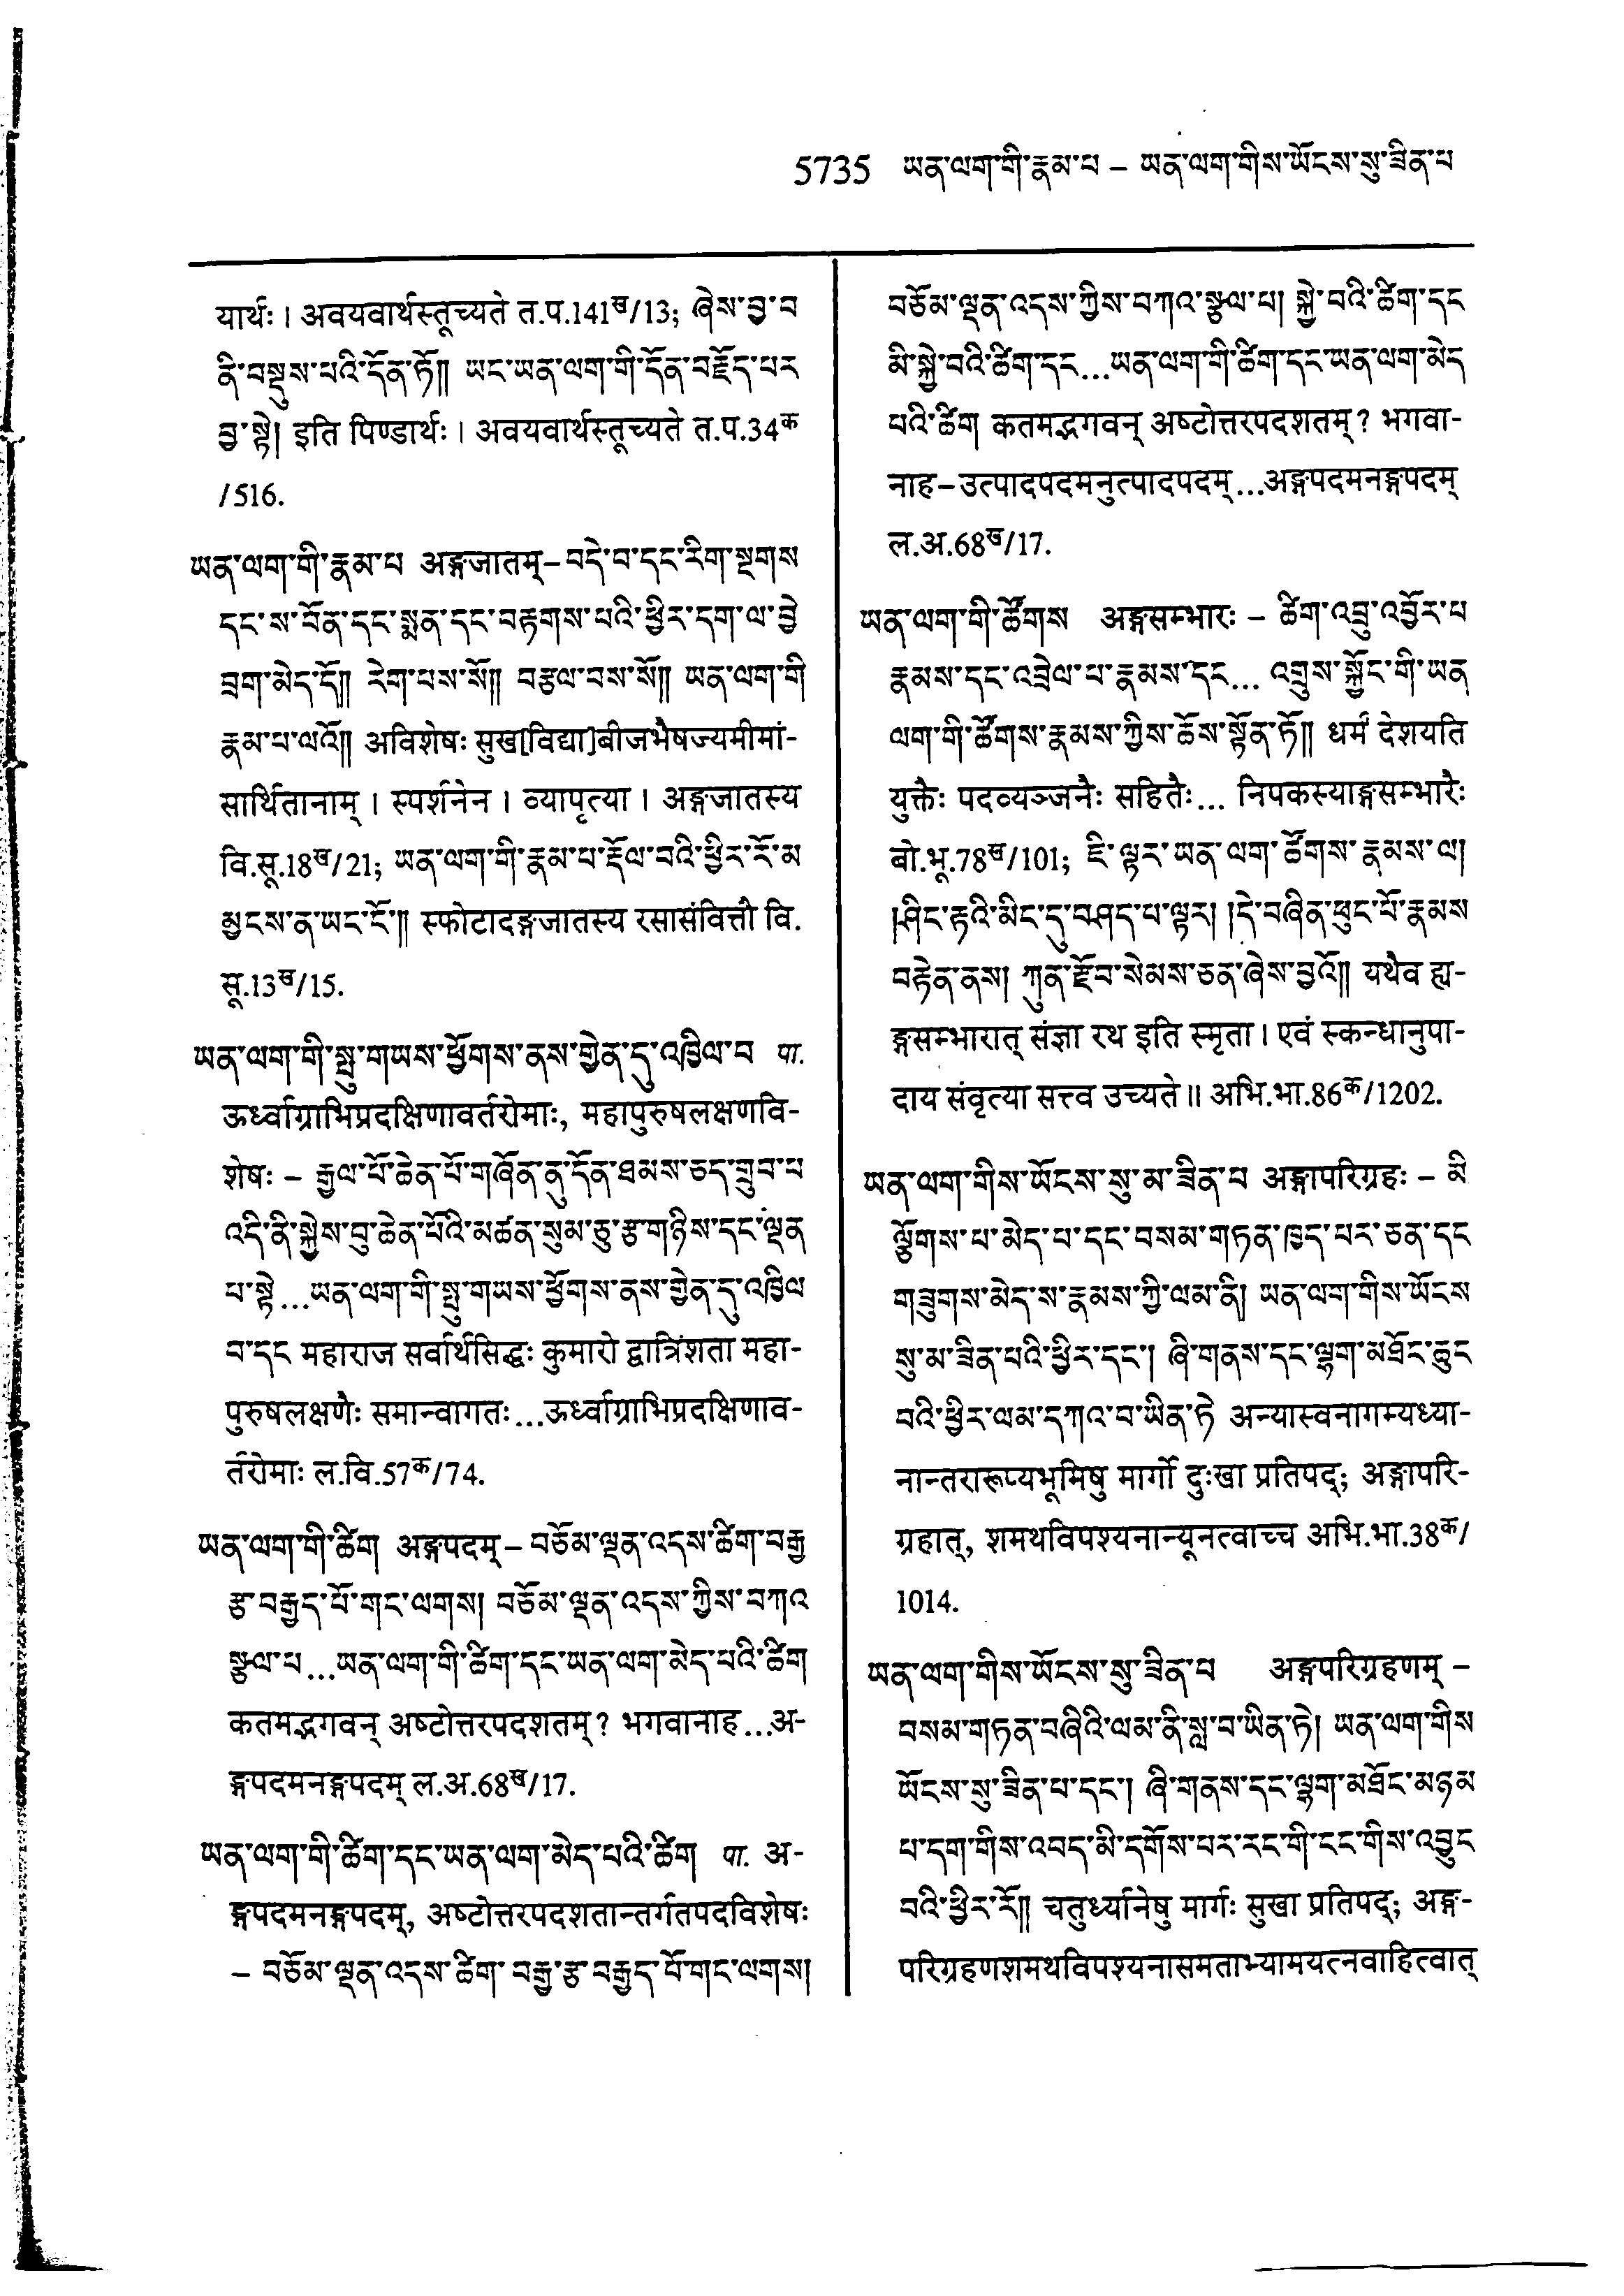 5735 ཡན་ལག་གི་རྣམ་པ – ཡན་ལག་གིས་ཡོངས་སུ་ཟིན་པ
यार्थः। अवयवार्थस्तूच्यते त.प.141ख/13; ཞེས་བྱ་བ
ནི་བསྡུས་པའི་དོན་ཏོ༎ ཡང་ཡན་ལག་གི་དོན་བརྗོད་པར
བྱ་སྟེ། इति पिण्डार्थः। अवयवार्थस्तूच्यते त.प.34क
/516.
ཡན་ལག་གི་རྣམ་པ अङ्गजातम्– བདེ་བ་དང་རིག་སྔགས
དང་ས་བོན་དང་སྨན་དང་བརྟགས་པའི་ཕྱིར་དག་ལ་བྱེ
བྲག་མེད་དོ༎ རེག་པས་སོ༎ བརྩལ་བས་སོ༎ ཡན་ལག་གི
རྣམ་པ་ལའོ༎ अविशेषः सुख[विद्या]बीजभैषज्यमीमां-
सार्थितानाम्। स्पर्शनेन। व्यापृत्या। अङ्गजातस्य
वि.सू.18ख/21; ཡན་ལག་གི་རྣམ་པ་རྡོལ་བའི་ཕྱིར་རོ་མ
མྱངས་ན་ཡང་ངོ་༎ स्फोटादङ्गजातस्य रसासंवित्तौ वि.
सू.13ख/15.
ཡན་ལག་གི་སྤུ་གཡས་ཕྱོགས་ནས་གྱེན་དུ་འཁྱིལ་བ पा.
ऊर्ध्वाग्राभिप्रदक्षिणावर्तरोमाः, महापुरुषलक्षणवि-
शेषः – རྒྱལ་པོ་ཆེན་པོ་གཞོན་ནུ་དོན་ཐམས་ཅད་གྲུབ་པ
འདི་ནི་སྐྱེས་བུ་ཆེན་པོའི་མཚན་སུམ་ཅུ་རྩ་གཉིས་དང་ལྡན
པ་སྟེ...ཡན་ལག་གི་སྤུ་གཡས་ཕྱོགས་ནས་གྱེན་དུ་འཁྱིལ
བ་དང महाराज सर्वार्थसिद्धः कुमारो द्वात्रिंशता महा-
पुरुषलक्षणैः समान्वागतः...ऊर्ध्वाग्राभिप्रदक्षिणाव-
र्तरोमाः ल.वि.57क/74.
ཡན་ལག་གི་ཚིག अङ्गपदम्– བཅོམ་ལྡན་འདས་ཚིག་བརྒྱ
རྩ་བརྒྱད་པོ་གང་ལགས། བཅོམ་ལྡན་འདས་ཀྱིས་བཀའ
སྩལ་པ...ཡན་ལག་གི་ཚིག་དང་ཡན་ལག་མེད་པའི་ཚིག
कतमद्भगवन् अष्टोत्तरपदशतम्? भगवानाह...अ-
ङ्गपदमनङ्गपदम् ल.अ.68ख/17.
ཡན་ལག་གི་ཚིག་དང་ཡན་ལག་མེད་པའི་ཚིག पा. अ-
ङ्गपदमनङ्गपदम्, अष्टोत्तरपदशतान्तर्गतपदविशेषः
– བཅོམ་ལྡན་འདས་ཚིག་བརྒྱ་རྩ་བརྒྱད་པོ་གང་ལགས།
བཅོམ་ལྡན་འདས་ཀྱིས་བཀའ་སྩལ་པ། སྐྱེ་བའི་ཚིག་དང
མི་སྐྱེ་བའི་ཚིག་དང...ཡན་ལག་གི་ཚིག་དང་ཡན་ལག་མེད
པའི་ཚིག། कतमद्भगवन् अष्टोत्तरपदशतम्? भगवा-
नाह–उत्पादपदमनुत्पादपदम्...अङ्गपदमनङ्गपदम्
ल.अ.68ख/17.
ཡན་ལག་གི་ཚོགས अङ्गसम्भारः – ཚིག་འབྲུ་འབྱོར་པ
རྣམས་དང་འབྲེལ་པ་རྣམས་དང... འགྲུས་སྐྱོང་གི་ཡན
ལག་གི་ཚོགས་རྣམས་ཀྱིས་ཆོས་སྟོན་ཏོ༎ धर्मं देशयति
युक्तैः पदव्यञ्जनैः सहितैः... निपकस्याङ्गसम्भारैः
बो.भू.78ख/101; ཇི་ལྟར་ཡན་ལག་ཚོགས་རྣམས་ལ།
།ཤིང་རྟའི་མིང་དུ་བཤད་པ་ལྟར། །དེ་བཞིན་ཕུང་པོ་རྣམས
བརྟེན་ནས། ཀུན་རྫོབ་སེམས་ཅན་ཞེས་བྱའོ༎ यथैव ह्य-
ङ्गसम्भारात् संज्ञा रथ इति स्मृता। एवं स्कन्धानुपा-
दाय संवृत्या सत्त्व उच्यते॥ अभि.भा.86क/1202.
ཡན་ལག་གིས་ཡོངས་སུ་མ་ཟིན་པ अङ्गापरिग्रहः – མི
ལྕོགས་པ་མེད་པ་དང་བསམ་གཏན་ཁྱད་པར་ཅན་དང
གཟུགས་མེད་ས་རྣམས་ཀྱི་ལམ་ནི། ཡན་ལག་གིས་ཡོངས
སུ་མ་ཟིན་པའི་ཕྱིར་དང་། ཞི་གནས་དང་ལྷག་མཐོང་ཆུང
བའི་ཕྱིར་ལམ་དཀའ་བ་ཡིན་ཏེ अन्यास्वनागम्यध्या-
नान्तरारूप्यभूमिषु मार्गो दुःखा प्रतिपद्; अङ्गापरि-
ग्रहात्, शमथविपश्यनान्यूनत्वाच्च अभि.भा.38क/
1014.
ཡན་ལག་གིས་ཡོངས་སུ་ཟིན་པ अङ्गपरिग्रहणम् –
བསམ་གཏན་བཞིའི་ལམ་ནི་སླ་བ་ཡིན་ཏེ། ཡན་ལག་གིས
ཡོངས་སུ་ཟིན་པ་དང་། ཞི་གནས་དང་ལྷག་མཐོང་མཉམ
པ་དག་གིས་འབད་མི་དགོས་པར་རང་གི་ངང་གིས་འབྱུང
བའི་ཕྱིར་རོ༎ चतुर्ध्यानेषु मार्गः सुखा प्रतिपद्; अङ्ग-
परिग्रहणशमथविपश्यनासमताभ्यामयत्नवाहित्वात्